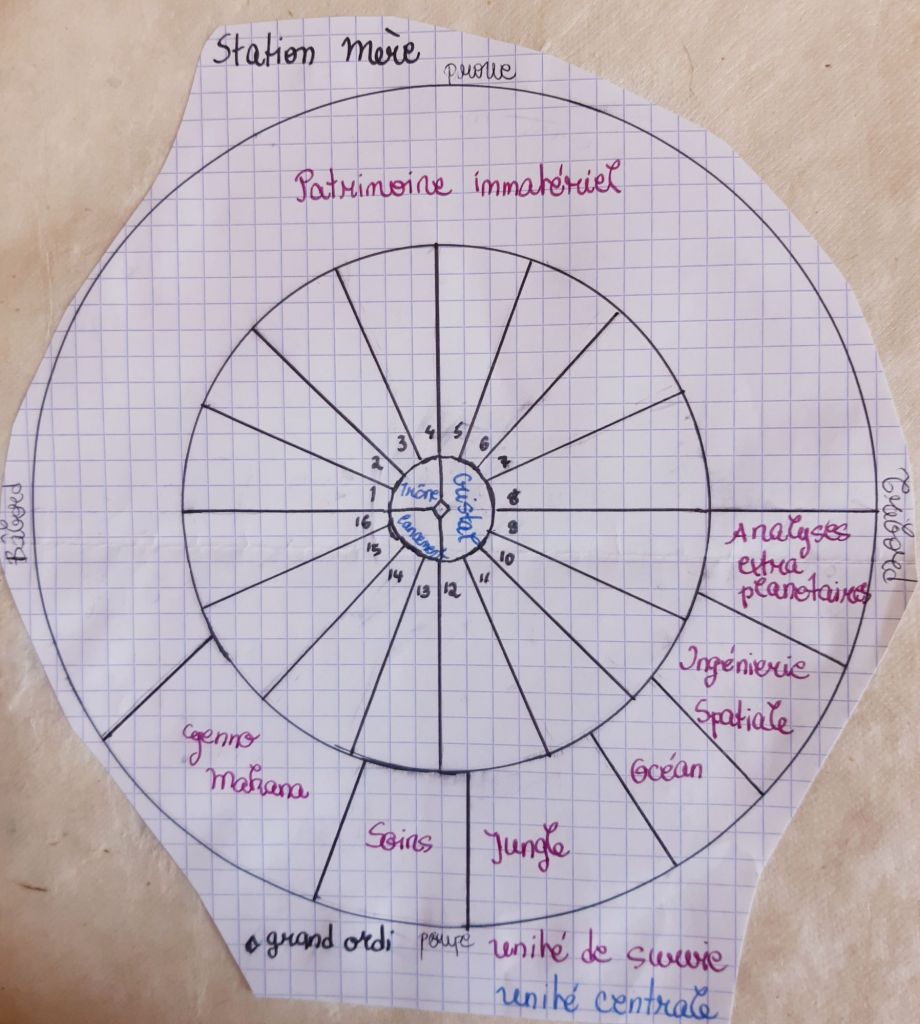 Station Mère
proue
Patrimoine immatériel
4
5
3
6
2
7
1
8
16
9
15
10
14
11
13
12
Trône
Cristal
lancement
Bâbord
Tribord
Analyses
extra
planetaires
Ingénierie
Spatiale
Océan
Jungle
Soins
Mahana
grand ordi
poupe
unité de survie
unité centrale